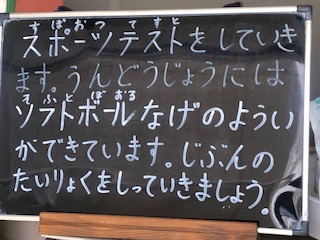 すぽおつてすと
スポーツテストをしていき
ます。うんどうじょうには
そふとぼおる
ソフトボールなげのようい
ができています。じぶんの
たいりょくをしっていきましょう。